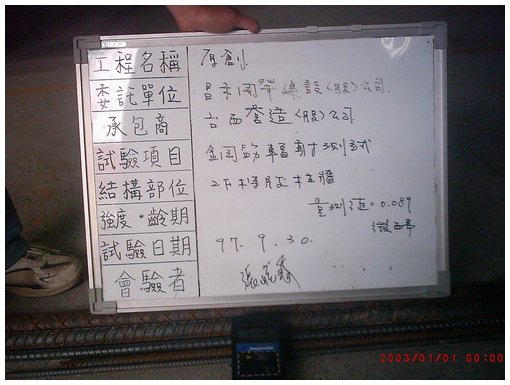 工程名稱 厚創
委託單位 建設〈股〉公司
承包商 台西營造〈股〉公司
試驗項目 鋼筋輻射測試
結構部位 2F樓版柱牆
強度·齡期 量測值=0.089
微西弗
試驗日期 97.9.30.
會驗者
2003/01/01 00:00